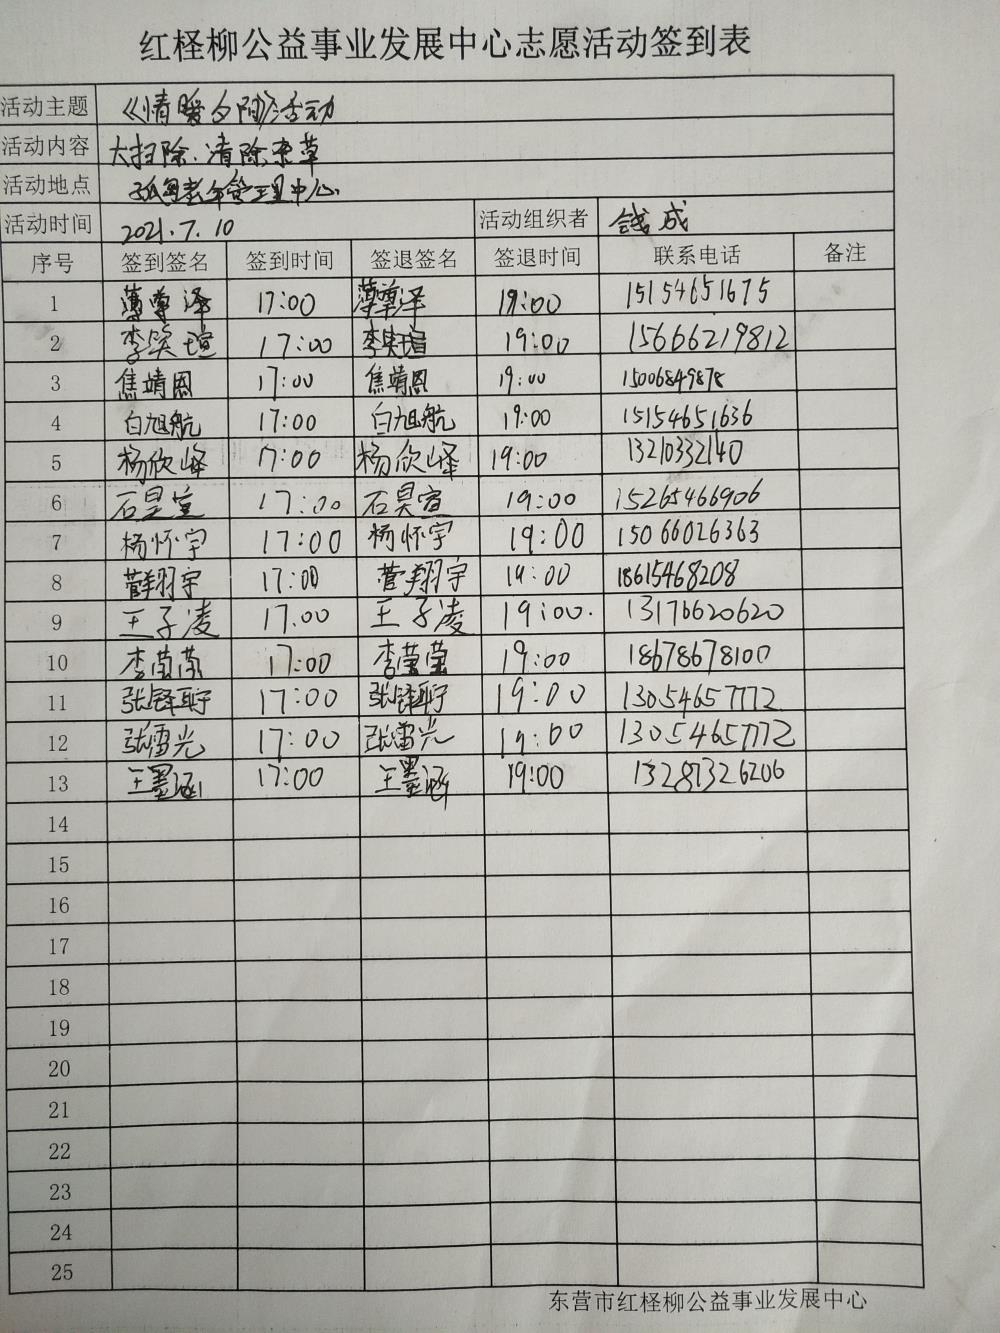 红柽柳公益事业发展中心志愿活动签到表
活动主题 《情暖夕阳》活动
活动内容 大扫除.清除杂草
活动地点 孤岛老年管理中心
活动时间 2021.7.10 活动组织者 钱成
序号 签到签名 签到时间 签退签名 签退时间 联系电话 备注
1 薄尊泽 17:00 薄尊泽 19:00 15154651675
2 李奕瑄 17:00 李奕瑄 19:00 15666219812
3 焦靖恩 17:00 焦靖恩 19:00 15006849878
4 白旭航 17:00 白旭航 19:00 15154651636
5 杨欣峰 17:00 杨欣峰 19:00 13210332140
6 石昊宣 17:00 石昊宣 19:00 15265466906
7 杨怀宇 17:00 杨怀宇 19:00 15066026363
8 菅翔宇 17:00 菅翔宇 19:00 18615468208
9 王子凌 17.00 王子凌 19:00. 13176620620
10 李莹莹 17:00 李莹莹 19:00 18678678100
11 17:00 19:00 13054657772
12 张雷光 17:00 张雷光 19:00 13054657772
13 王墨涵 17:00 王墨涵 19:00 13287326206
14
15
16
17
18
19
20
21
22
23
24
25
东营市红柽柳公益事业发展中心